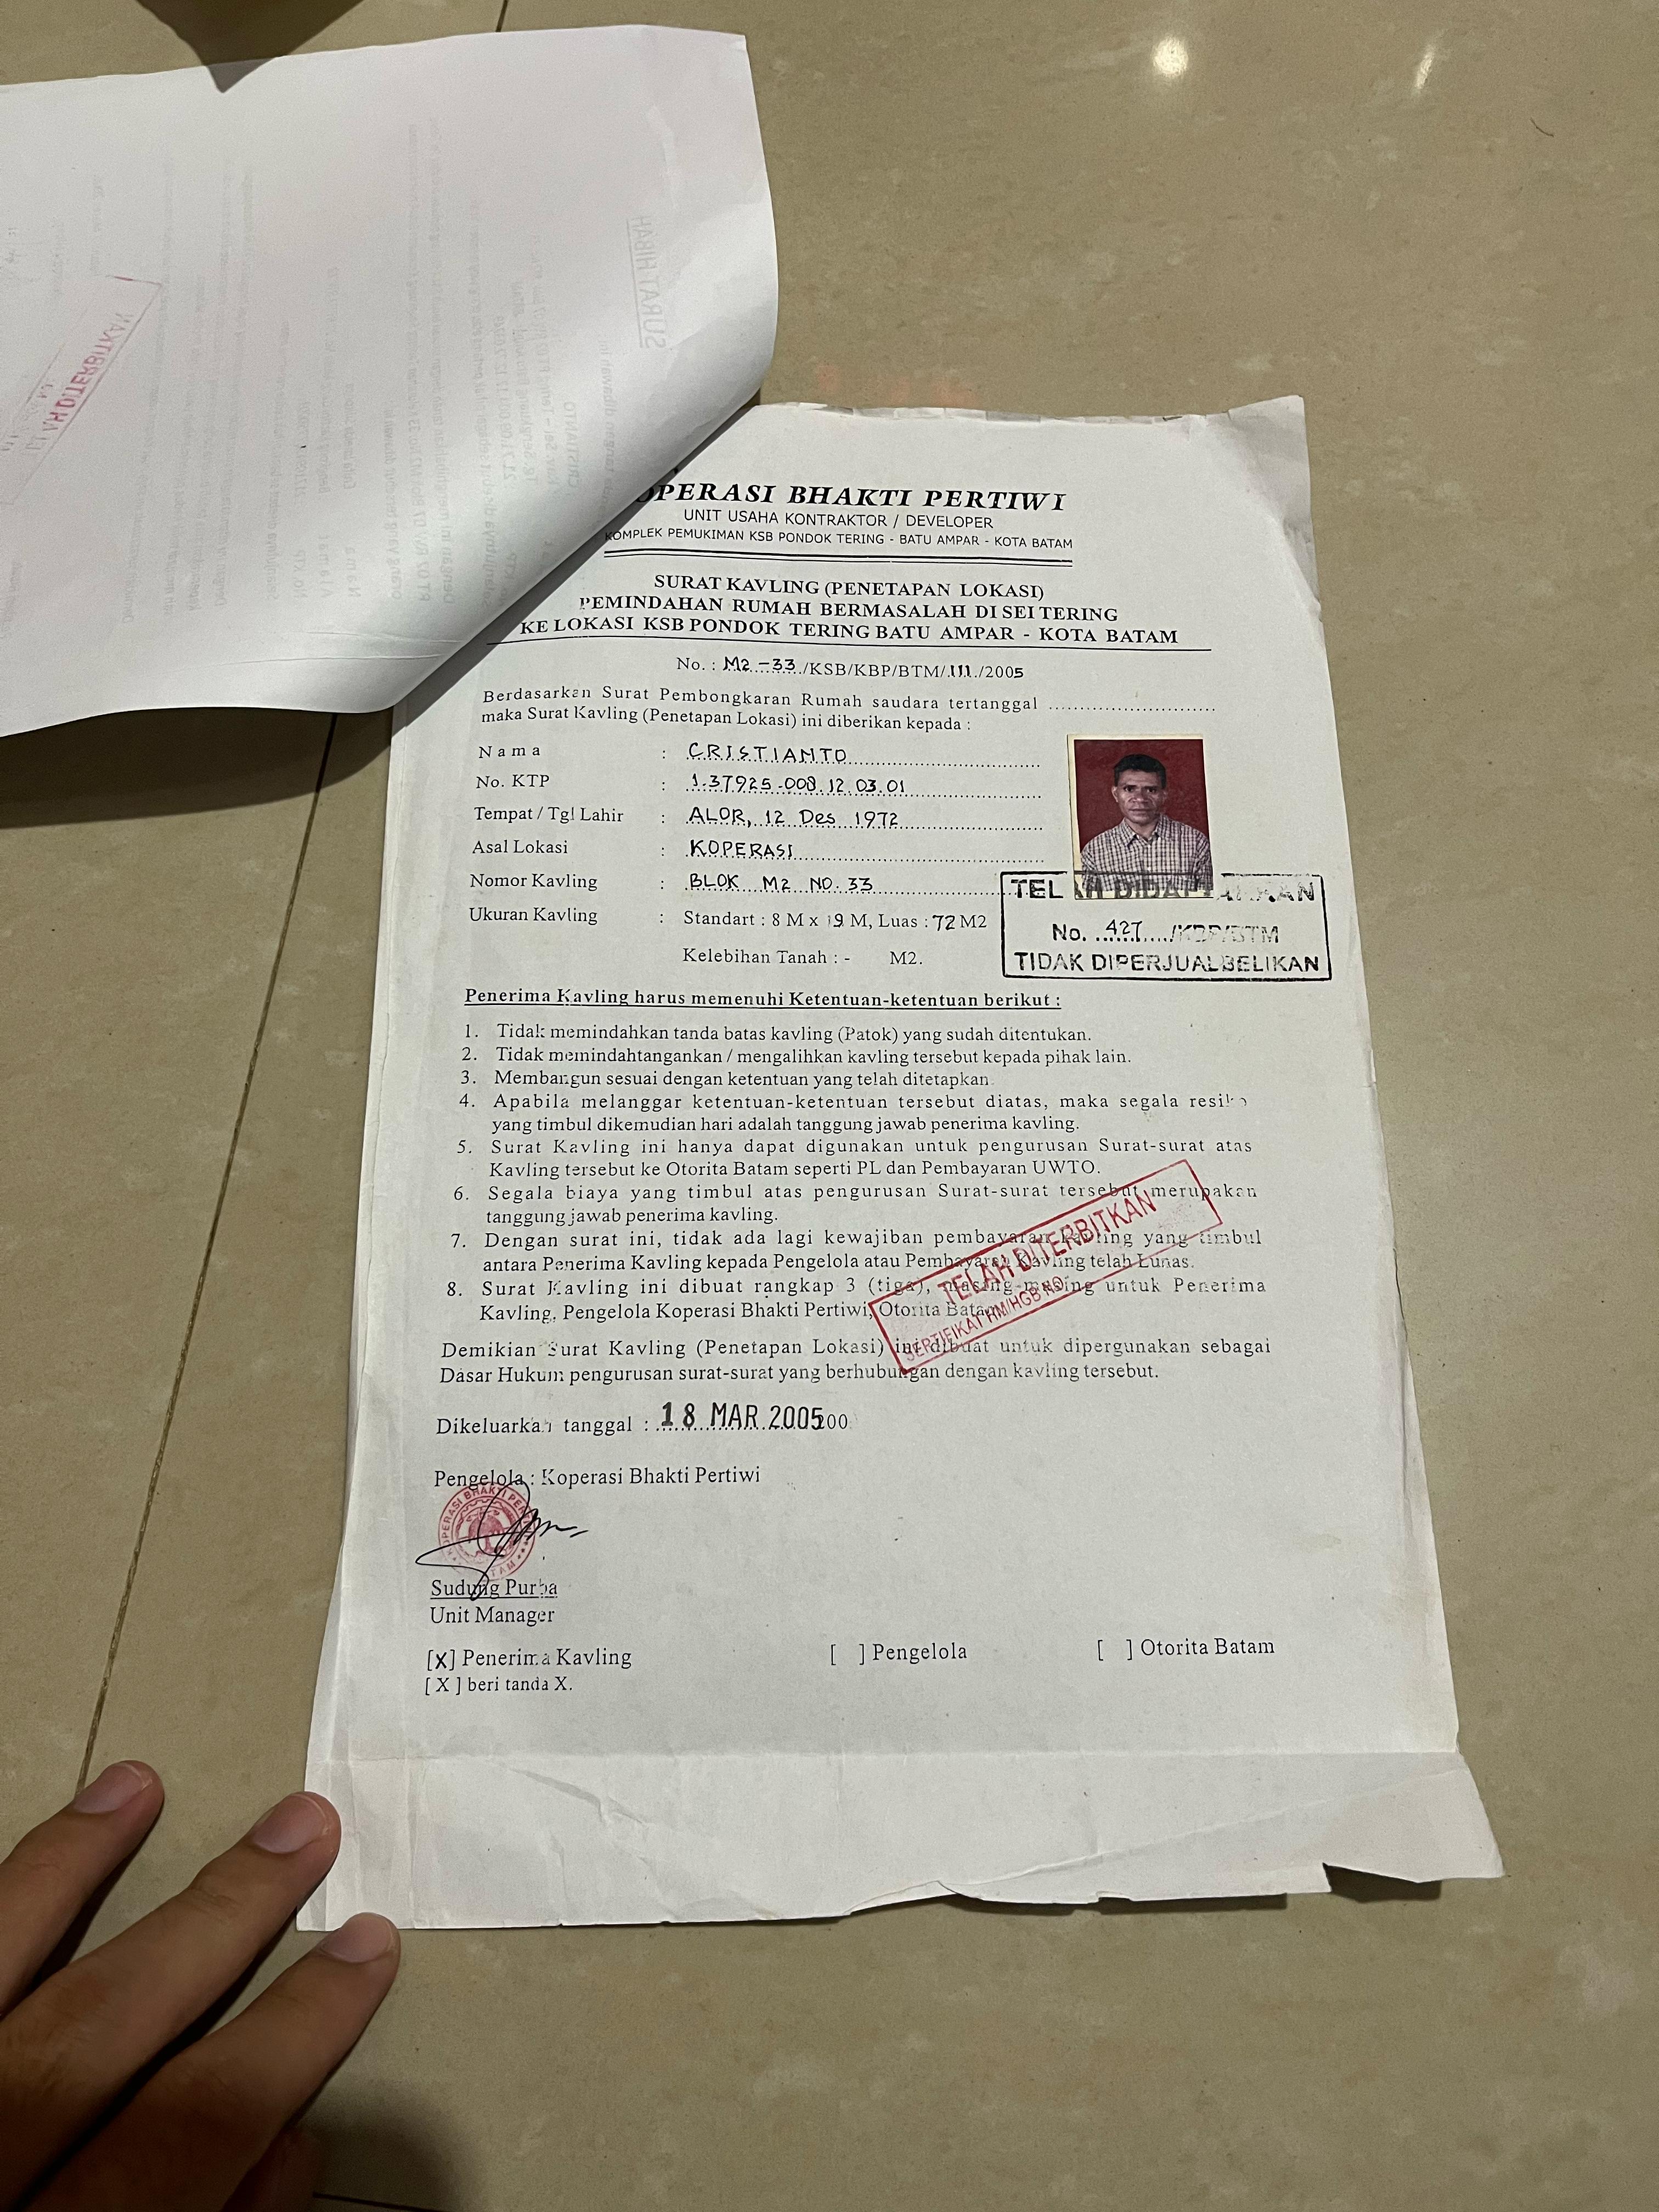 OPERASI BHAKTI PERTIWI
UNIT USAHA KONTRAKTOR / DEVELOPER
KOMPLEK PEMUKIMAN KSB PONDOK TERING - BATU AMPAR - KOTA BATAM
SURAT KAVLING (PENETAPAN LOKASI)
PEMINDAHAN RUMAH BERMASALAH DI SEI TERING
KE LOKASI KSB PONDOK TERING BATU AMPAR - KOTA BATAM
No. : M2-33/KSB/KBP/BTM/III/2005
Berdasarkan Surat Pembongkaran Rumah saudara tertanggal ..........................
maka Surat Kavling (Penetapan Lokasi) ini diberikan kepada :
Nama : CRISTIANTO
No. KTP : 1.37925.008.12.03.01
Tempat / Tgl Lahir : ALOR, 12 Des 1972
Asal Lokasi : KOPERASI
Nomor Kavling : BLOK M2 NO. 33
Ukuran Kavling : Standart : 8 M x 9 M, Luas : 72 M2
Kelebihan Tanah : - M2.
TELAH DIDAFTARKAN
No. 427/KBP/BTM
TIDAK DIPERJUALBELIKAN
Penerima Kavling harus memenuhi Ketentuan-ketentuan berikut :
1. Tidak memindahkan tanda batas kavling (Patok) yang sudah ditentukan.
2. Tidak memindahtangankan / mengalihkan kavling tersebut kepada pihak lain.
3. Membangun sesuai dengan ketentuan yang telah ditetapkan.
4. Apabila melanggar ketentuan-ketentuan tersebut diatas, maka segala resiko
yang timbul dikemudian hari adalah tanggung jawab penerima kavling.
5. Surat Kavling ini hanya dapat digunakan untuk pengurusan Surat-surat atas
Kavling tersebut ke Otorita Batam seperti PL dan Pembayaran UWTO.
6. Segala biaya yang timbul atas pengurusan Surat-surat tersebut merupakan
tanggung jawab penerima kavling.
7. Dengan surat ini, tidak ada lagi kewajiban pembayaran kavling yang timbul
antara Penerima Kavling kepada Pengelola atau Pembayaran Kavling telah Lunas.
8. Surat Kavling ini dibuat rangkap 3 (tiga), masing-masing untuk Penerima
Kavling, Pengelola Koperasi Bhakti Pertiwi, Otorita Batam.
TELAH DITERBITKAN
SERTIFIKAT HM/HGB NO.
Demikian Surat Kavling (Penetapan Lokasi) ini dibuat untuk dipergunakan sebagai
Dasar Hukum pengurusan surat-surat yang berhubungan dengan kavling tersebut.
Dikeluarkan tanggal : 18 MAR 2005 200
Pengelola : Koperasi Bhakti Pertiwi
KOPERASI BHAKTI PERTIWI
BATAM
Sudung Purba
Unit Manager
[X] Penerima Kavling [ ] Pengelola [ ] Otorita Batam
[X] beri tanda X.
SURAT HIBAH
CRISTIANTO
TELAH DITERBITKAN